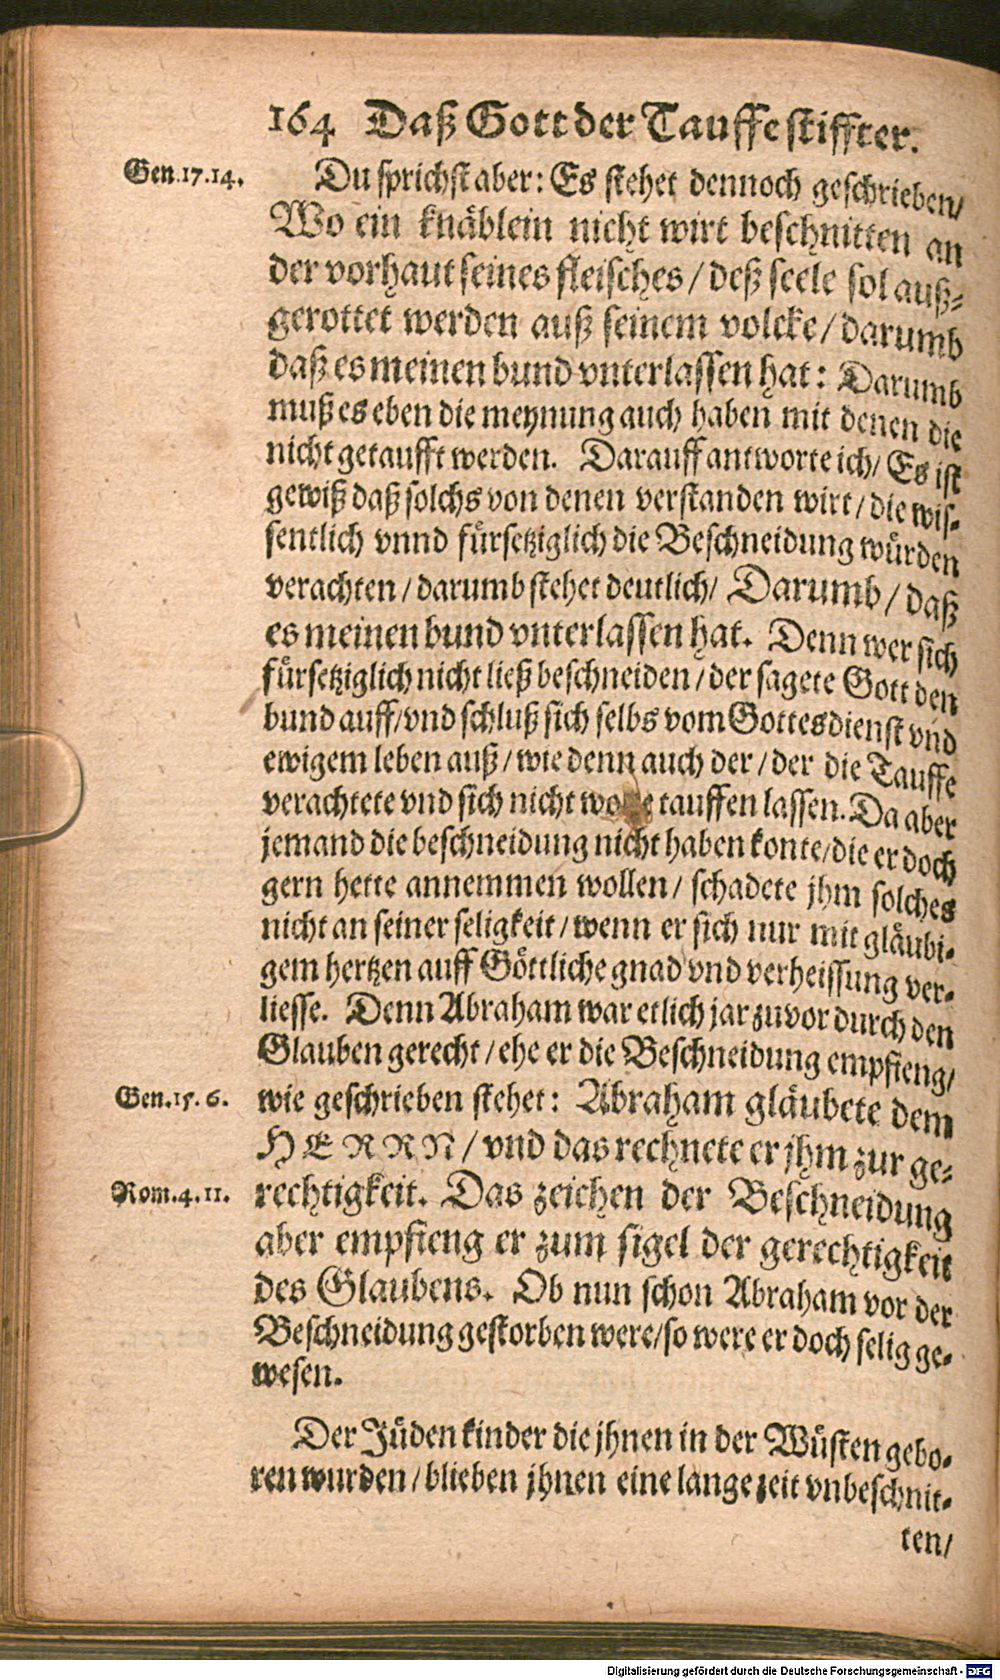 164 Daß Gott der Tauffe stiffter.
Gen.17.14. Du sprichst aber: Es stehet dennoch geschrieben/
Wo ein knäblein nicht wirt beschnitten an
der vorhaut seines fleisches/ deß seele sol auß-
gerottet werden auß seinem volcke/ darumb
daß es meinen bund vnterlassen hat: Darumb
muß es eben die meynung auch haben mit denen die
nicht getaufft werden. Darauff antworte ich/ Es ist
gewiß daß solchs von denen verstanden wirt/ die wis-
sentlich vnnd fürsetziglich die Beschneidung würden
verachten/ darumb stehet deutlich/ Darumb/ daß
es meinen bund vnterlassen hat. Denn wer sich
fürsetziglich nicht ließ beschneiden/ der sagete Gott den
bund auff/ vnd schluß sich selbs vom Gottesdienst vnd
ewigem leben auß/ wie denn auch der/ der die Tauffe
verachtete vnd sich nicht tauffen lassen. Da aber
jemand die beschneidung nicht haben konte/ die er doch
gern hette annemmen wollen/ schadete jhm solches
nicht an seiner seligkeit/ wenn er sich nur mit gläubi-
gem hertzen auff Göttliche gnad vnd verheissung ver-
liesse. Denn Abraham war etlich jar zuvor durch den
Glauben gerecht/ ehe er die Beschneidung empfieng/
Gen.15.6. wie geschrieben stehet: Abraham gläubete dem
HERRN/ vnd das rechnete er jhm zur ge-
Rom.4.11. rechtigkeit. Das zeichen der Beschneidung
aber empfieng er zum sigel der gerechtigkeit
des Glaubens. Ob nun schon Abraham vor der
Beschneidung gestorben were/ so were er doch selig ge-
wesen.
Der Jüden kinder die jhnen in der Wüsten gebo-
ren wurden/ blieben jhnen eine lange zeit vnbeschnit-
ten/
Digitalisierung gefördert durch die Deutsche Forschungsgemeinschaft - DFG